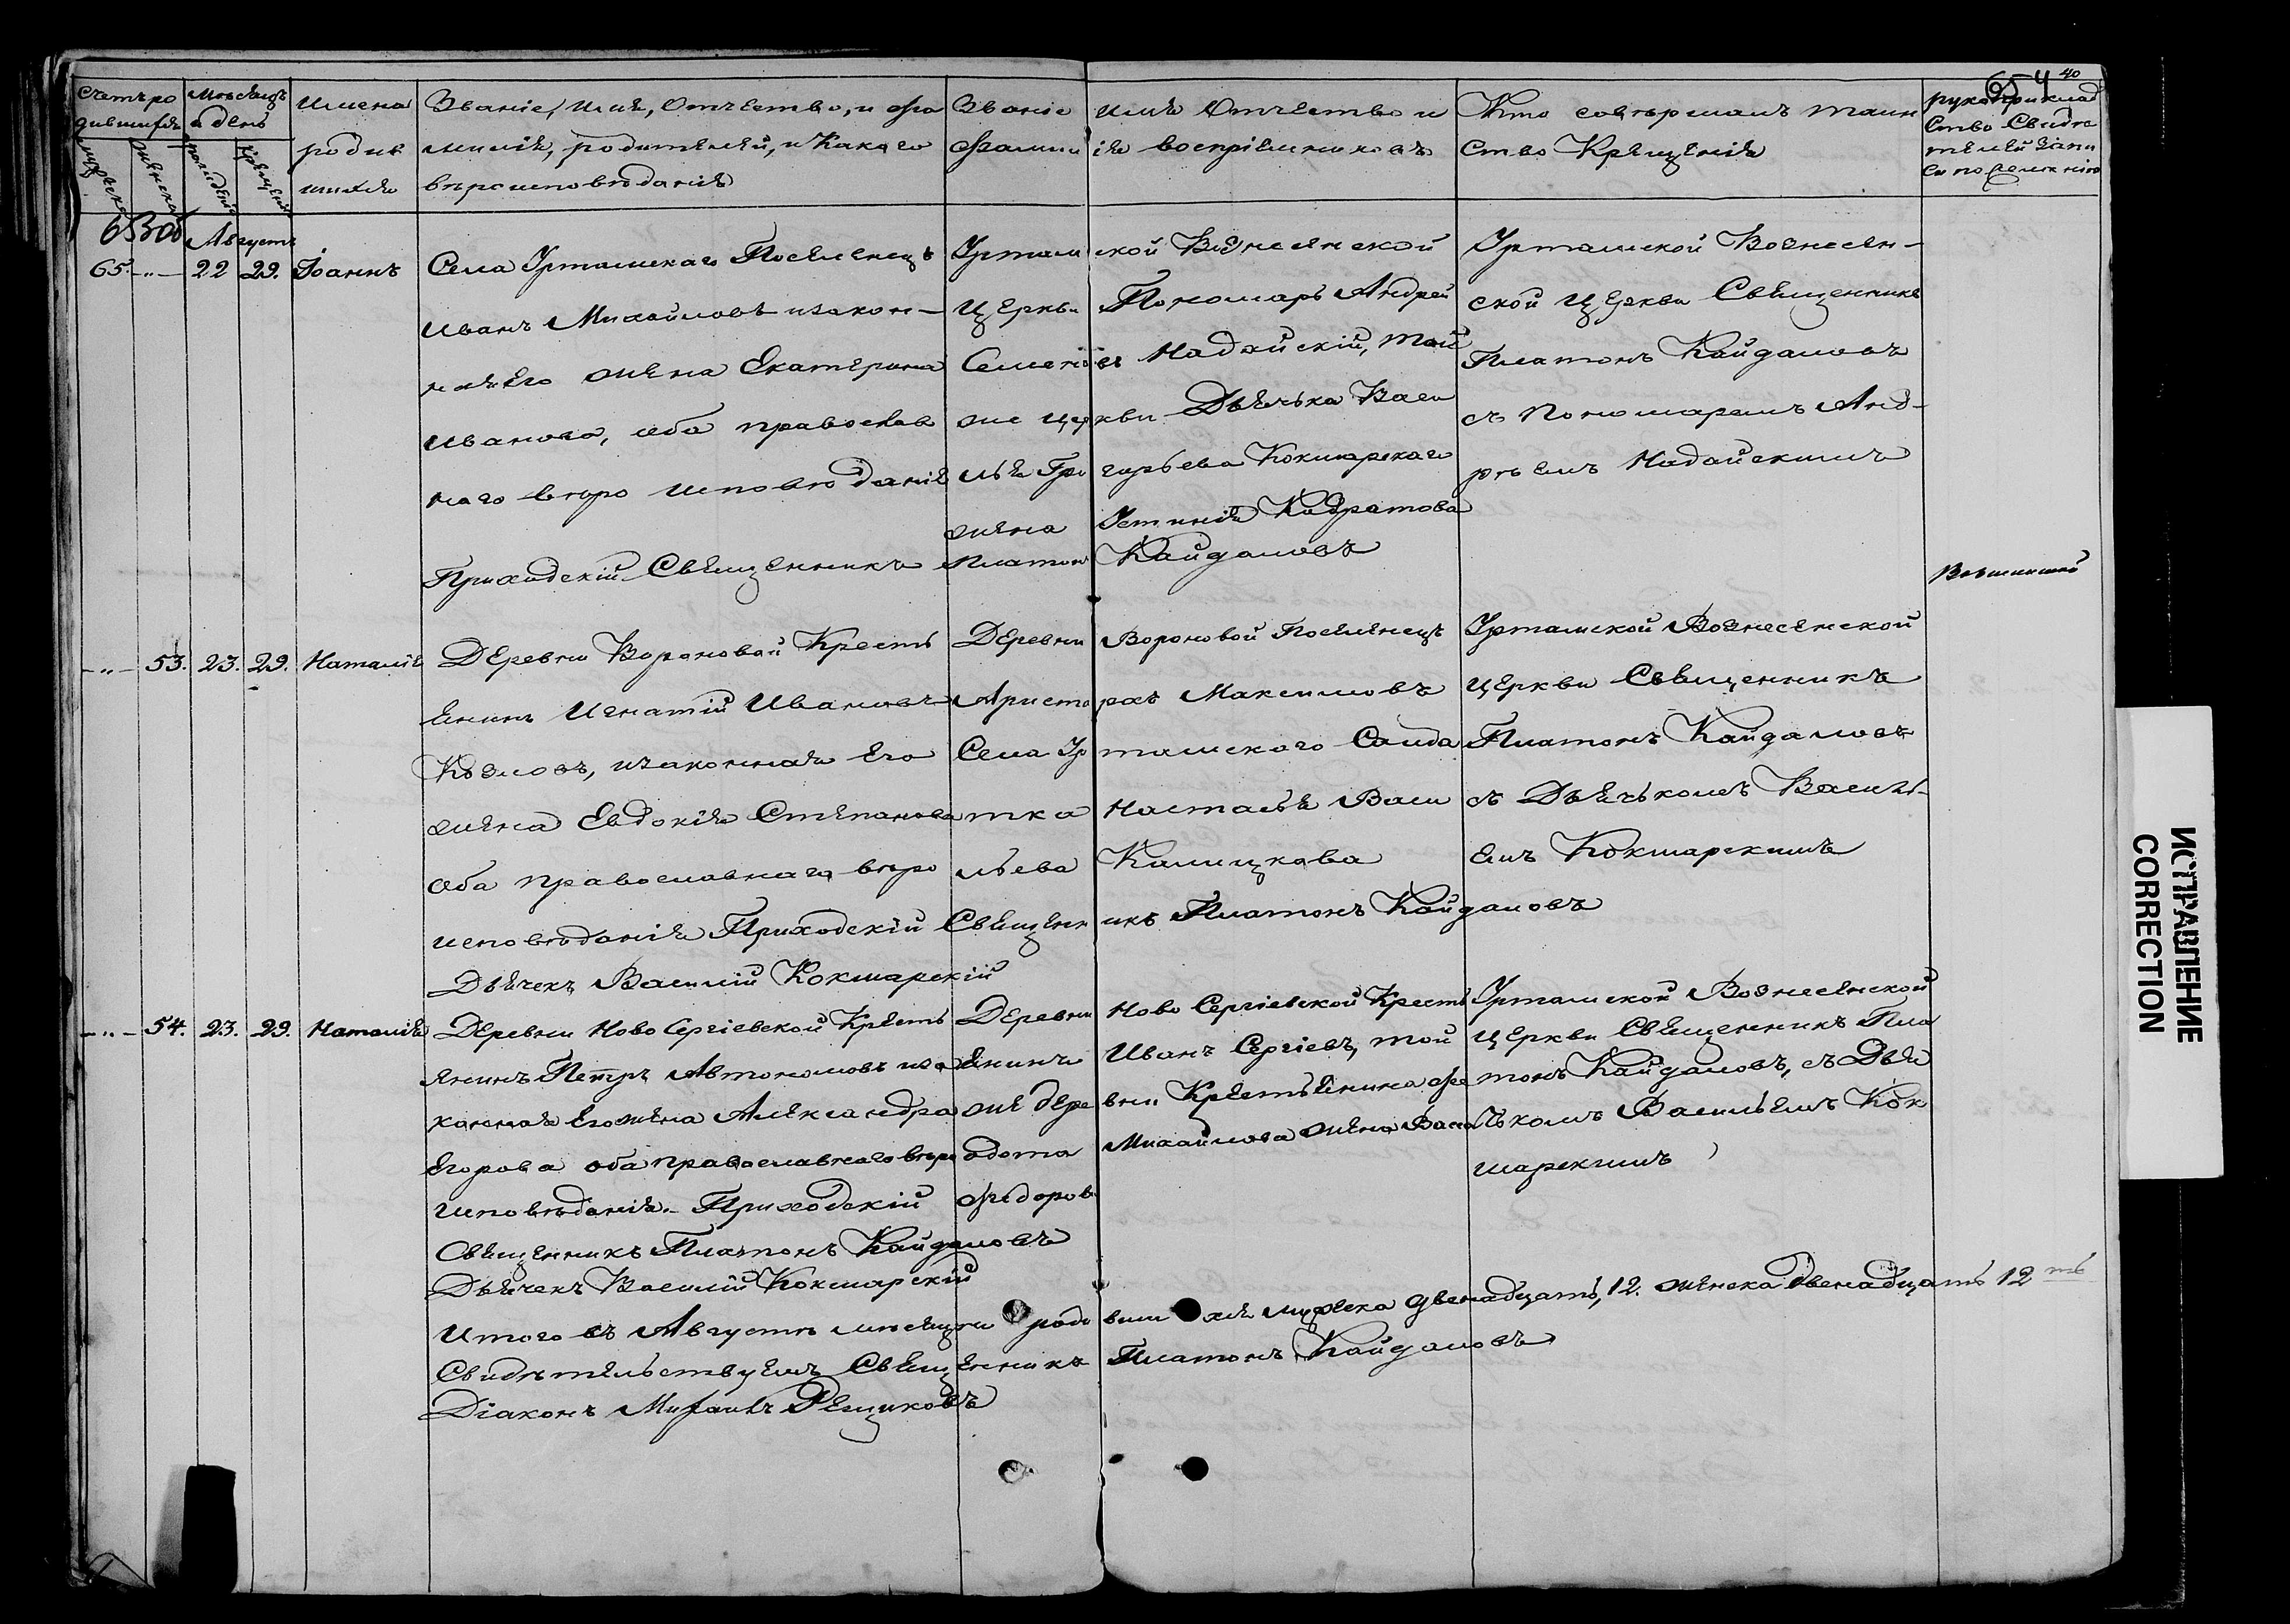 654 40
Счетъ ро
дившихся
Мѣсяцъ
и день
Имена
родив
шихся
Званіе, имя, Отчество, и фа
милія, родителей, и Какого
вѣроисповѣданія
Званіе имя Отчество и
фамилія воспріемниковъ
Кто совершалъ таин
ство Крещенія
рукоприклад
ство Свидѣ
телей запи
си по желанію
мужеска
женска
рожденія
Крещенія
Августъ
65. -„- 22 29. Іоаннъ
Села Уртамскаго Поселенецъ
Иванъ Михайловъ изакон-
ная Его жена Екатерина
Иванова, оба православ
наго вѣро исповѣданія
Приходскій Священникъ Платонъ Кайдаловъ
Уртамской Вознесенской
Церкви Пономарь Андрей
Семеновъ Надайскій, той
же церкви Дьячька Васи
лья Григорьева Кокшарскаго
жена Устинія Кодратова
Уртамской Вознесен-
ской церкви Священникъ
Платонъ Кайдаловъ
съ пономаремъ Анд-
реемъ Надайскимъ
-„- 53. 23. 29. Наталія
Деревни Вороновой Кресть
янинъ Игнатій Ивановъ
Козловъ, изаконная Его
жена Евдокія Степанова
оба православнаго вѣро
исповѣданія Приходскій Священникъ Платонъ Кайдаловъ
Дьячекъ Василій Кокшарскій
Деревни Вороновой Поселенецъ
Аристархъ Максимовъ
Села Уртамскаго Солда
тка Настасья Васи
льева
Уртамской Вознесенской
церкви Священникъ
Платонъ Кайдаловъ
съ Дьячькомъ Василь-
емъ Кокшарскимъ
-„- 54. 23. 29. Наталія
Деревни Ново Сергіевской Кресть
янинъ Петръ Автономовъ иза
конная Его жена Александра
Егорова оба православнаго вѣро
исповѣданія. Приходскій
Священникъ Платонъ Кайдаловъ
Дьячекъ Василій Кокшарскій
Деревни Ново Сергіевской Кресть
янинъ Иванъ Сергіевъ, той
же деревни Крестьянина Фе
одота Михайлова жена Васса
Ѳедорова
Уртамской Вознесенской
церкви Священникъ Пла
тонъ Кайдаловъ, съ Дья
чькомъ Васильемъ Кок
шарскимъ
Итого въ Августѣ мѣсяцѣ родившихся мужеска двенадцать, 12. женска двенадцать 12ть
Свидѣтельствуемъ Священникъ Платонъ Кайдаловъ
Діаконъ Михаилъ Рещиковъ
ИСПРАВЛЕНИЕ
CORRECTION